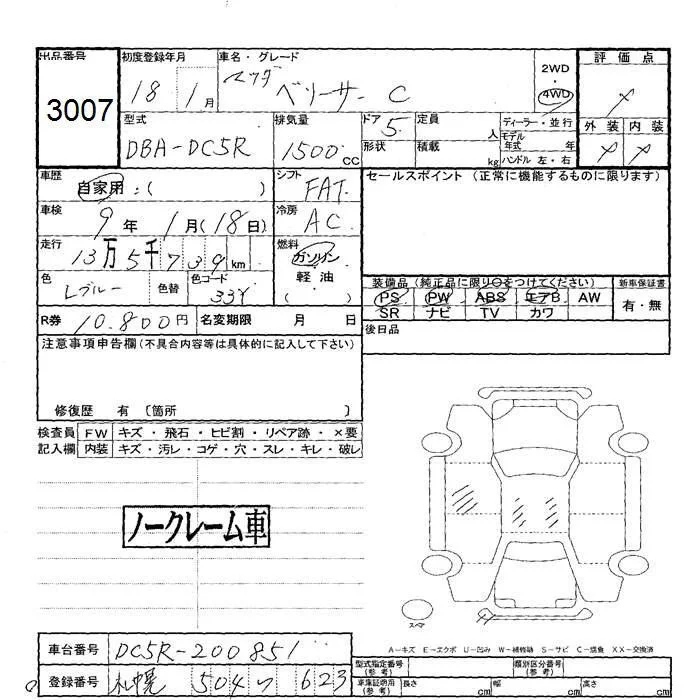 出品番号
3007
初度登録年月
18 1月
車名・グレード
マツダ ベリーサ C
2WD
・
4WD
評価点
外装 内装
型式
DBA-DC5R
排気量
1500cc
ドア
5
形状
定員
人
積載
kg
ディーラー・並行
モデル
年式 年
ハンドル 左・右
車歴
自家用:( )
シフト
FAT
セールスポイント (正常に機能するものに限ります)
車検
9年 1月(18日)
冷房
AC
走行
13万5千739km
燃料
ガソリン
軽油
( )
色
Lブルー
色替
色コード
33Y
装備品 (純正品に限り○をつけてください)
PS PW ABS エアB AW
SR ナビ TV カワ
新車保証書
有・無
R券 10.800円 名変期限 月 日
後日品
注意事項申告欄(不具合内容等は具体的に記入して下さい)
修復歴 有 〔箇所 〕
検査員 FW キズ・飛石・ヒビ割・リペア跡・×要
記入欄 内装 キズ・汚レ・コゲ・穴・スレ・キレ・破レ
ノークレーム車
スペア
A-キズ E-エクボ U-凹み W-補修跡 S-サビ C-腐食 XX-交換済
車台番号 DC5R-200851
登録番号 札幌 504 ソ 623
型式指定番号
(参考)
類別区分番号
(参考)
車庫証明用
(参考)
長さ cm 幅 cm 高さ cm